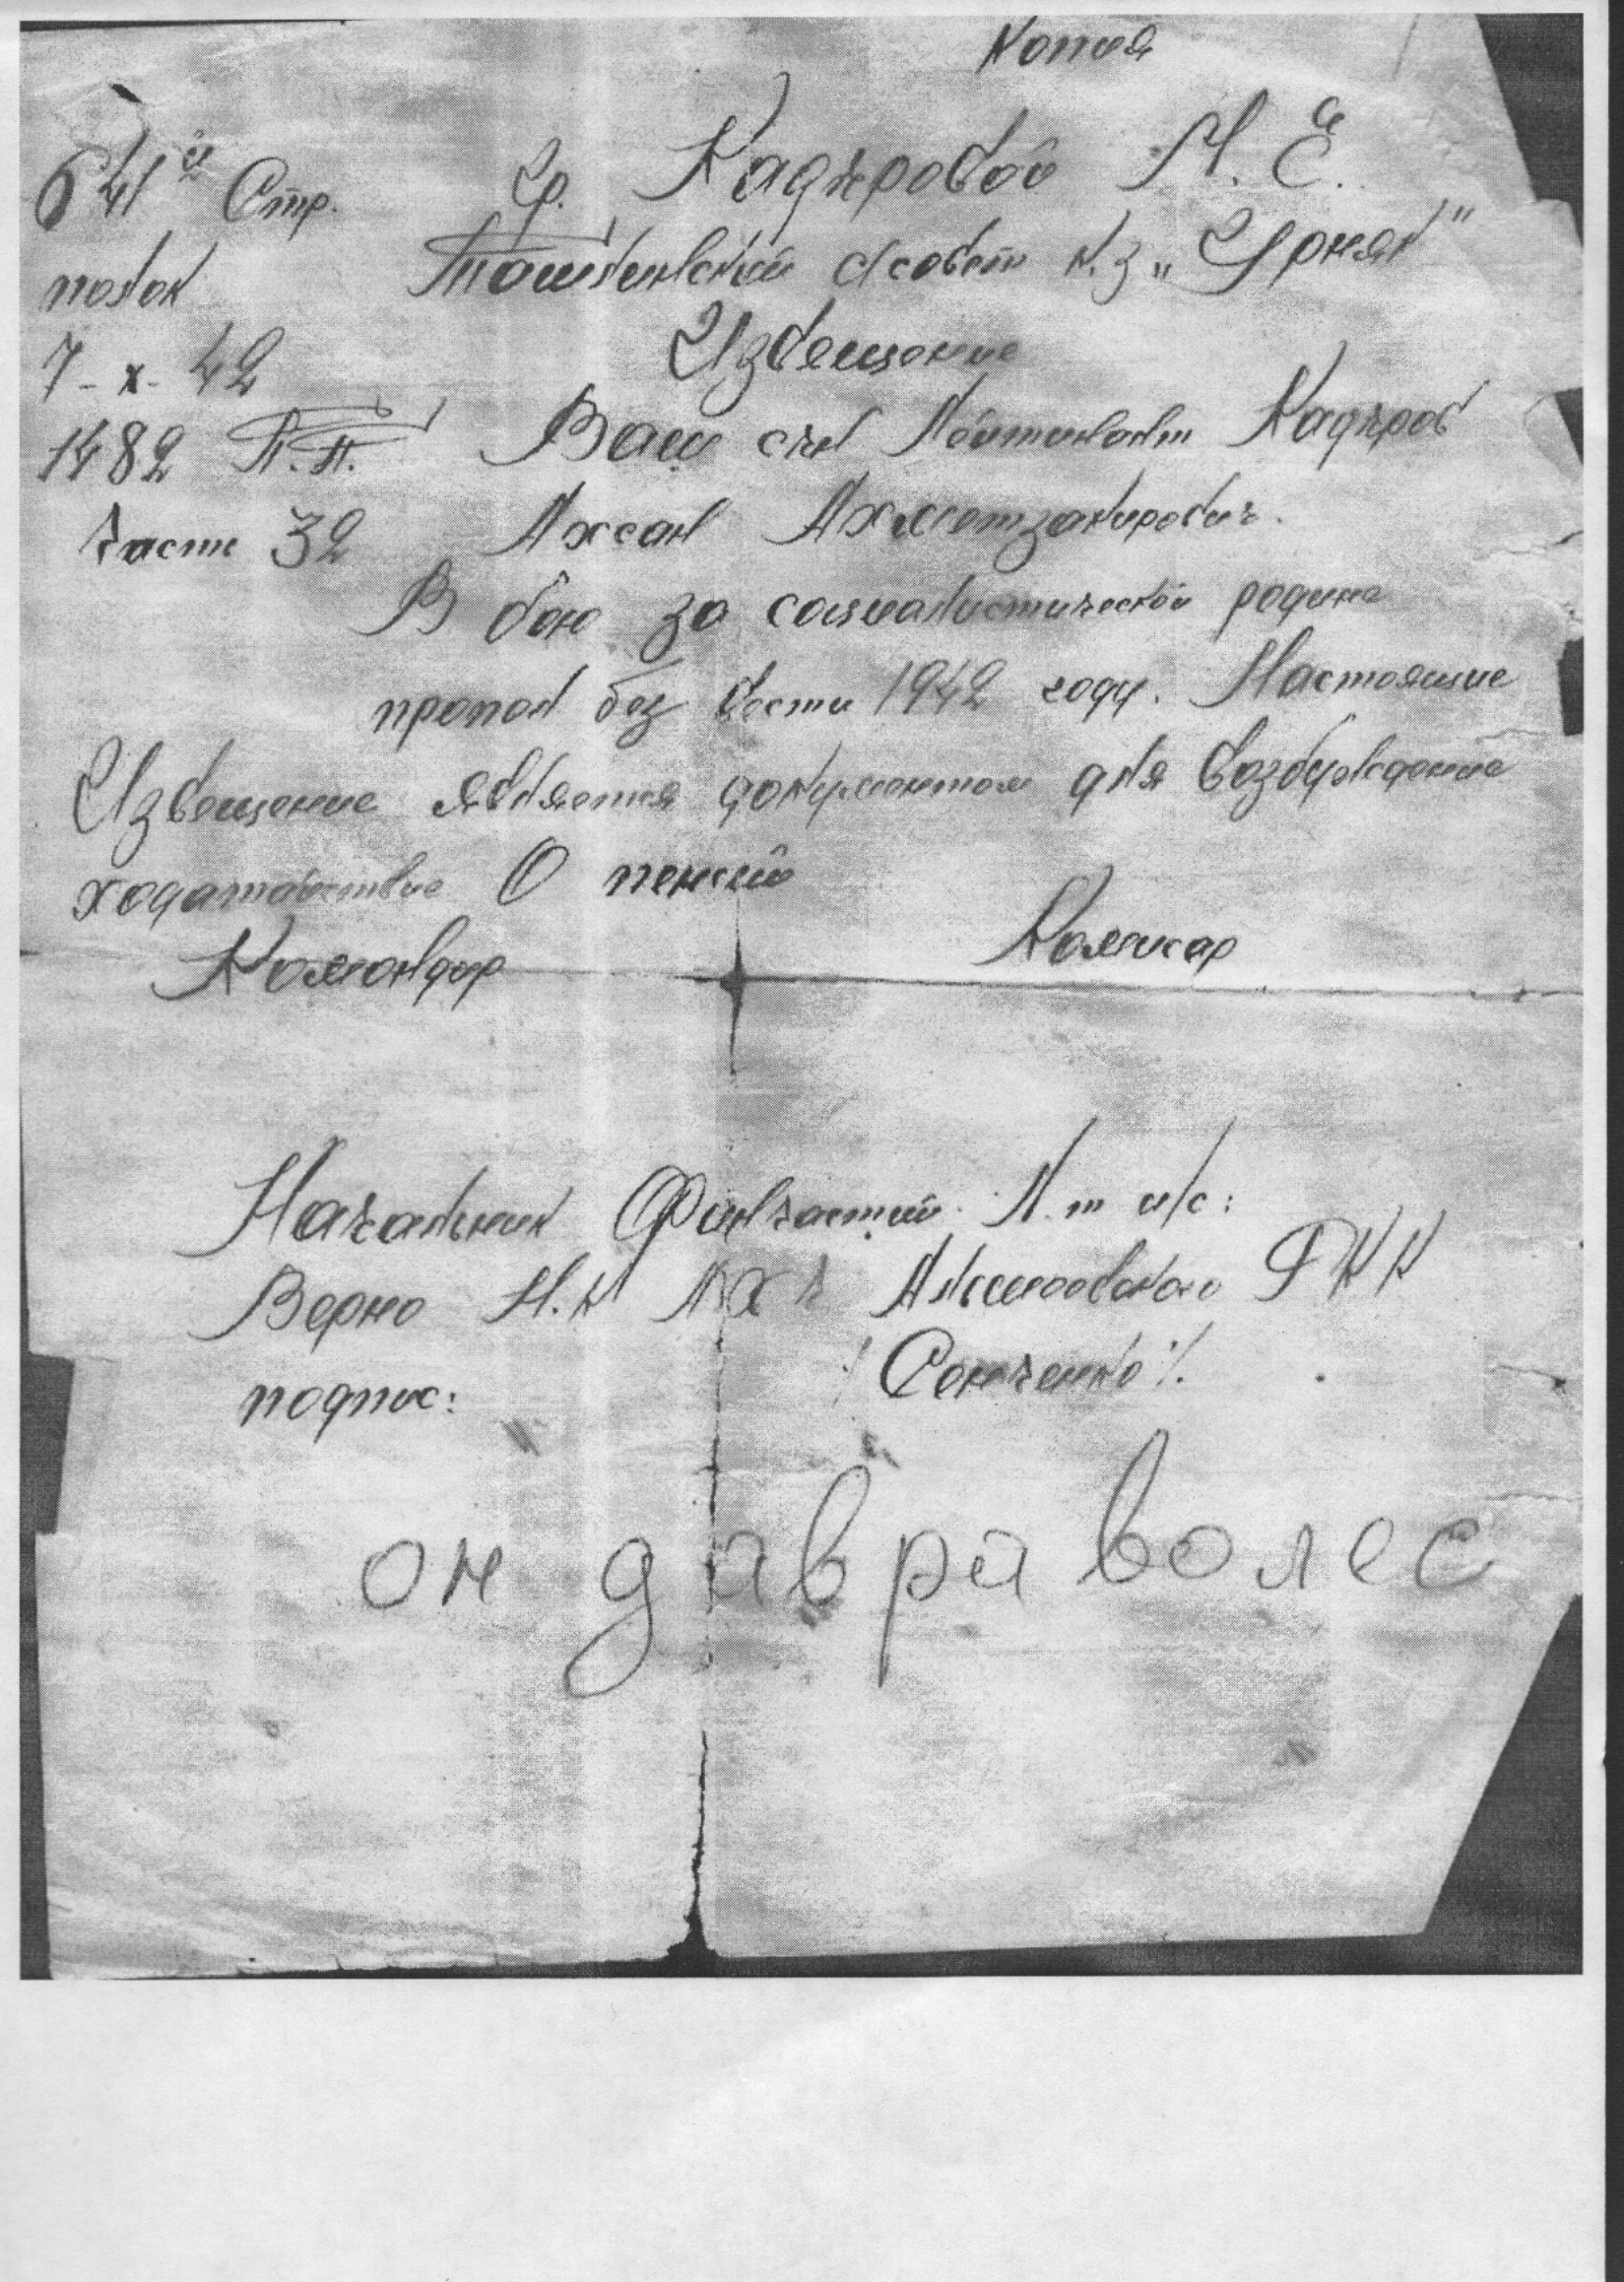 Копия
641й Стр.
полк
7-х-42
1482 П.П.
Часть 32
Гр. Кадыровой М. Е.
Ташкинский с/совет к.з "Урняк"
Извещение
Ваш сын Лейтинант Кадыров
Ахсан Ахметзакирович.
В бою за социалистической родине
пропал без вести 1942 году. Настоящие
Извещение является документом для возбуждение
ходатайствие О пенсий
Командир Комисар
Начальник Финчастий Л.т и/с:
Верно Н.к АХЧ РКК
подпис:
он давра волес